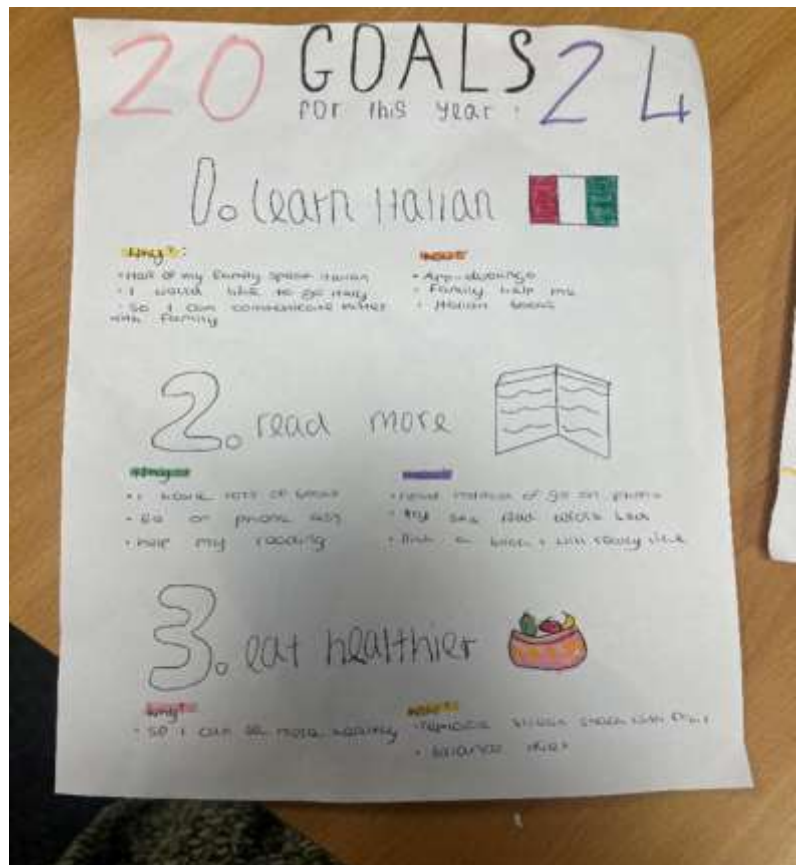 20 GOALS 24
for this year :
1. learn Italian
Why? :
• Half of my family speak Italian
• I would like to go Italy
• So I can communicate better
with family
How?
• App-duolingo
• Family help me
• Italian books
2. read more
Why?
• I have lots of books
• Go on phone less
• help my reading
• read instead of go on phone
• Try read before bed
• Pick a book I will really like
3. eat healthier
Why?
• So I can be more healthy
How?
• replace snack with fruit
• balance diet